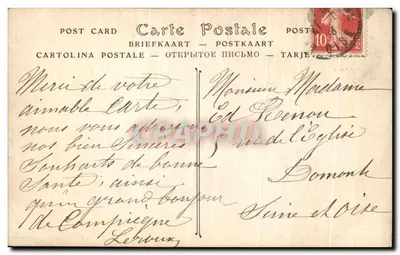 POST CARD Carte Postale POST
BRIEFKAART — POSTKAART
CARTOLINA POSTALE — ОТКРЫТОЕ ПИСЬМО — TARJE
10
Merci de votre
aimable Carte,
nous vous
nos bien sincères
Souhaits de bonne
Santé, ainsi
qu'un grand bonjour
de Compiègne
Leroux
Monsieur Madame
Ed Renou
5 rue de l'Eglise
Domont
Seine et Oise